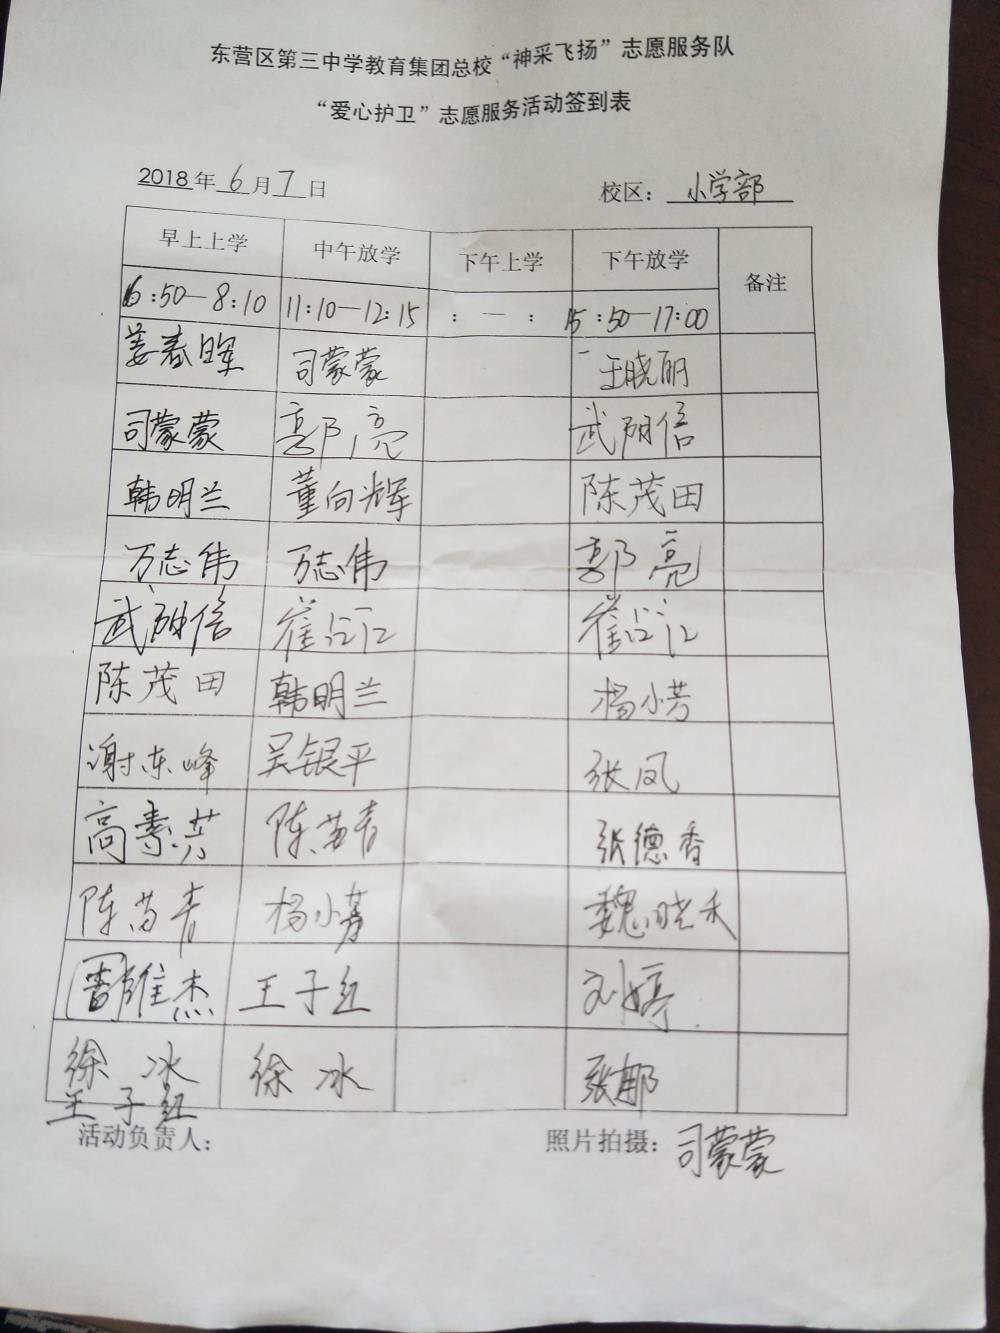 东营区第三中学教育集团总校“神采飞扬”志愿服务队
“爱心护卫”志愿服务活动签到表
2018年6月7日 校区：小学部
早上上学 中午放学 下午上学 下午放学 备注
6:50—8:10 11:10—12:15 : — : 15:50—17:00
姜春晖 司蒙蒙 王晓丽
司蒙蒙 郭亮 武阴倍
韩明兰 董向辉 陈茂田
万志伟 万志伟 郭亮
武阴倍 崔江 崔江
陈茂田 韩明兰 杨小芳
谢东峰 吴银平 张凤
高素芳 陈苗青 张德香
陈苗青 杨小芳 魏晓禾
维杰 王子红 刘婷
徐冰 徐冰 张那
王子红
活动负责人： 照片拍摄：司蒙蒙